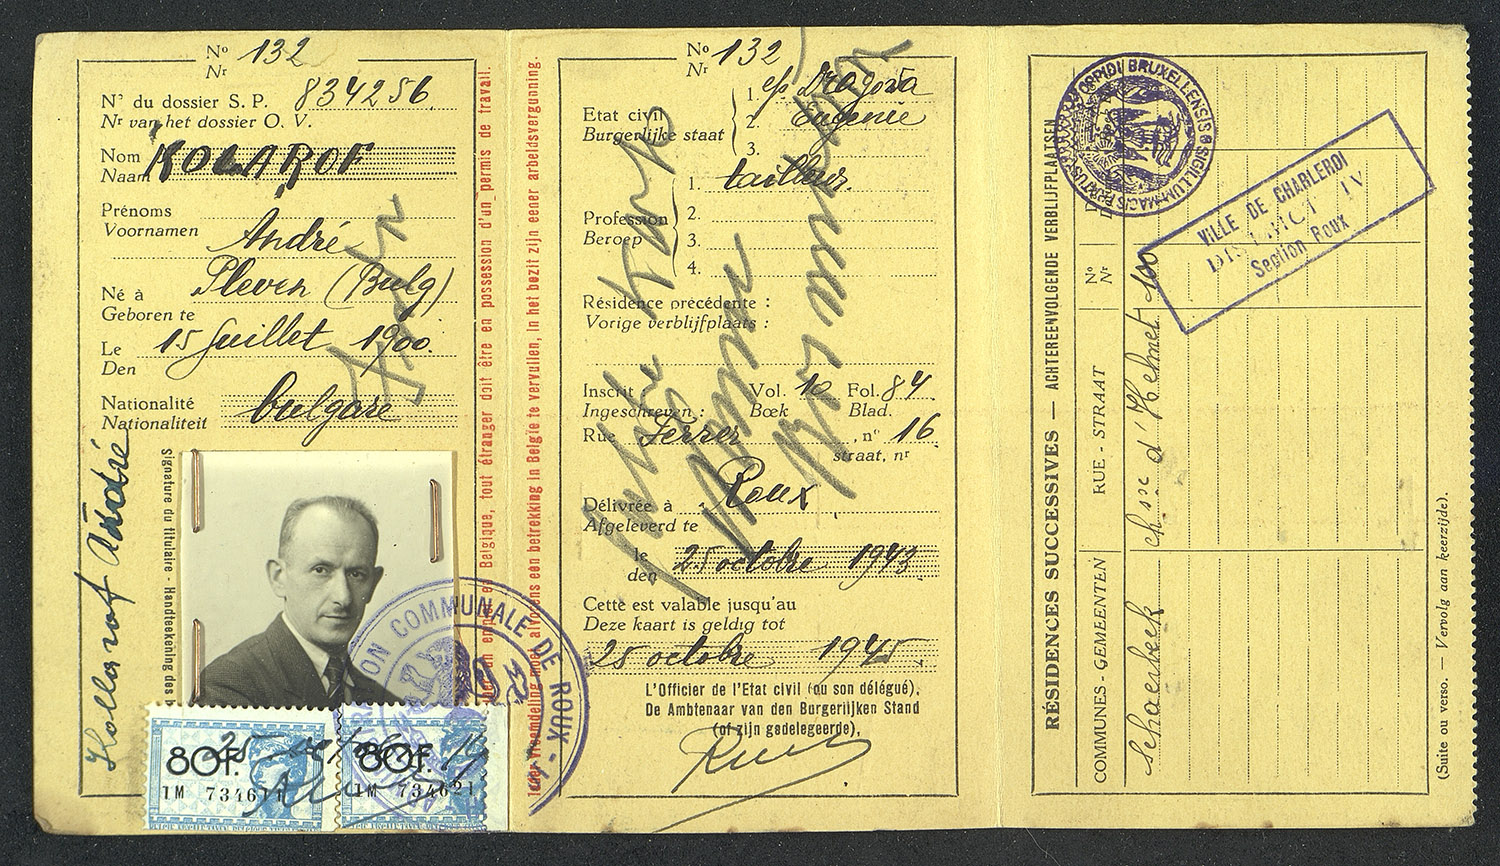 Nº 132
Nr
Nº du dossier S. P. 834256
Nr van het dossier O. V.
Nom KOLAROF
Naam
Prénoms
Voornamen André
Né à Pleven (Bulg)
Geboren te
Le 15 Juillet 1900.
Den
Nationalité bulgare
Nationaliteit
Kollarof André
Signature du titulaire - Handteekening des
80F.
1M 7346
80F.
1M 734621
Belgique, tout étranger doit être en possession d'un permis de travail.
alvorens een betrekking in Belgie te vervullen, in het bezit zijn eener arbeidsvergunning.
ON COMMUNALE DE ROUX
Nº 132
Nr
Etat civil
Burgerlijke staat
1. ep Dragova
2. Eugénie
3.
Profession
Beroep
1. tailleur.
2.
3.
4.
Résidence précédente :
Vorige verblijfplaats :
Inscrit Vol. 10 Fol. 84
Ingeschreven : Bœk Blad.
Rue Ferrer, nº 16
straat, nr
Délivrée à Roux
Afgeleverd te
le 25 octobre 1943
den
Cette est valable jusqu'au
Deze kaart is geldig tot
25 octobre 1945
L'Officier de l'Etat civil (ou son délégué),
De Ambtenaar van den Burgerlijken Stand
(of zijn gedelegeerde),
RÉSIDENCES SUCCESSIVES — ACHTEREENVOLGENDE VERBLIJFPLAATSEN
COMMUNES - GEMEENTEN
RUE - STRAAT
Nº
Nr
Schaerbeek chsée d'Helmet 100
BRUXELLENSIS SIGILLUM
VILLE DE CHARLEROI
DISTRICT IV
Section Roux
(Suite ou verso. — Vervolg aan keerzijde).